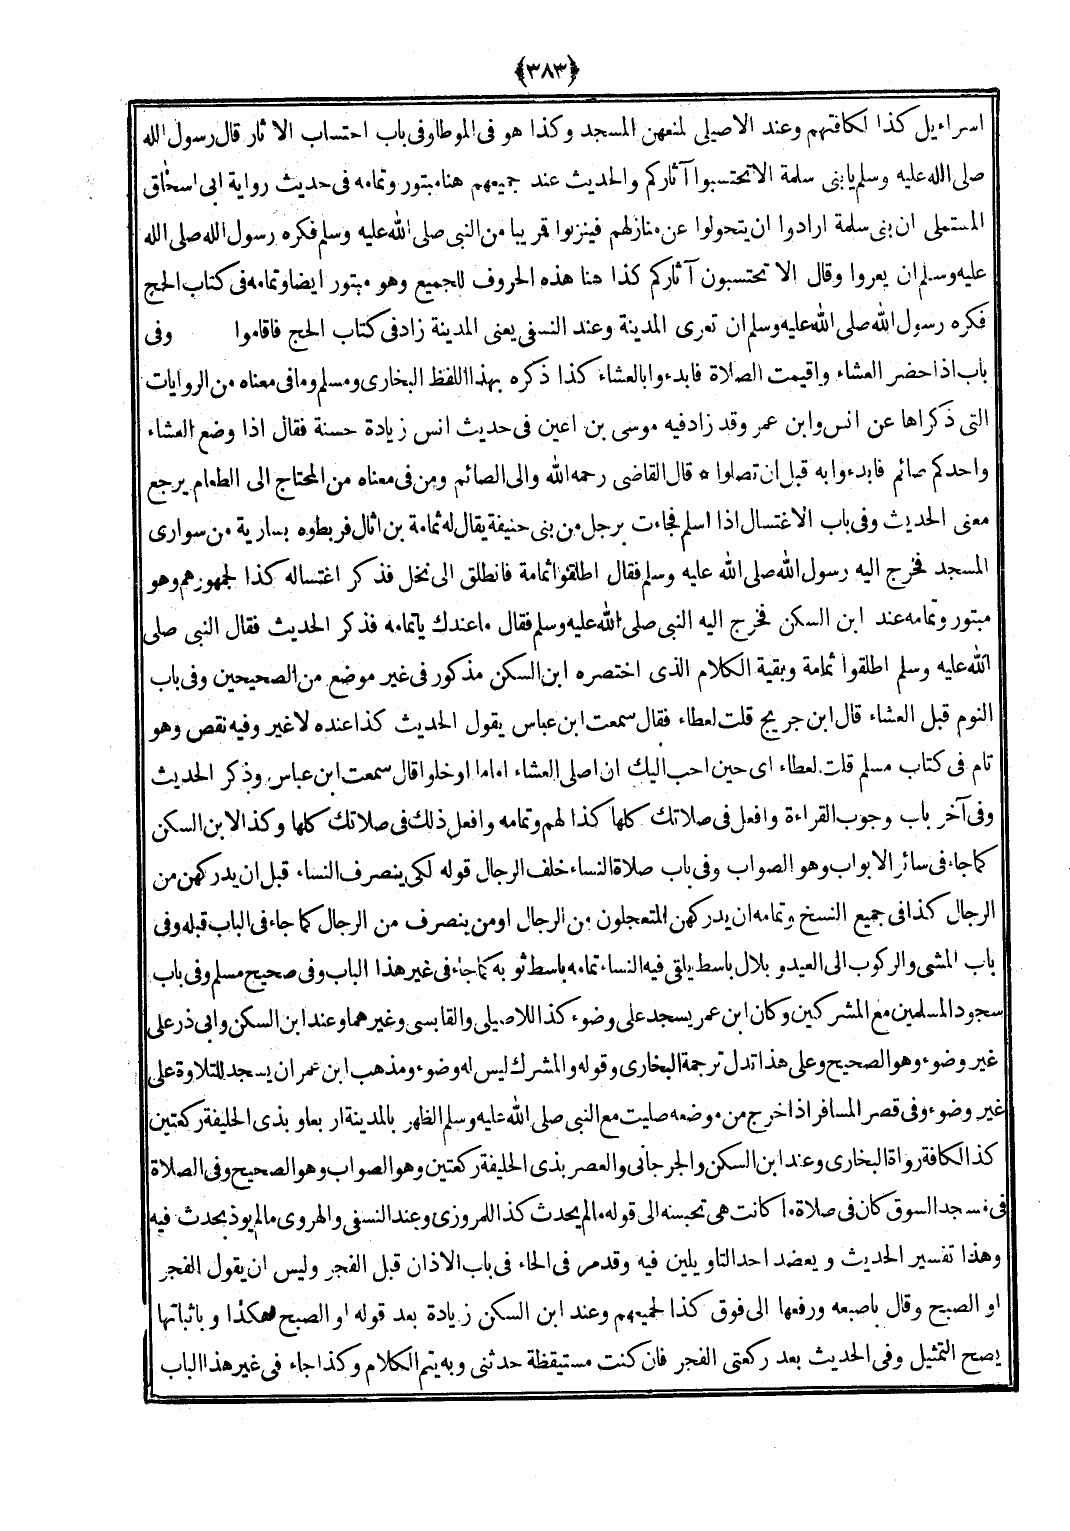 ﴿٣٨٣﴾
اسراءيل كذا لكافتهم وعند الاصيلى لمنعهن المسجد وكذا هو فى الموطا وفى باب احتساب الاثار قال رسول الله
صلى الله عليه وسلم يا بنى سلمة الا تحتسبوا آثاركم والحديث عند جميعهم هنا مبتور وتمامه فى حديث رواية ابى اسحٰق
المستملى ان بنى سلمة ارادوا ان يتحولوا عن منازلهم فينزلوا قريبا من النبى صلى الله عليه وسلم فكره رسول الله صلى الله
عليه وسلم ان يعروا وقال الا تحتسبون آثاركم كذا هنا هذه الحروف للجميع وهو مبتور ايضا وتمامه فى كتاب الحج
فكره رسول الله صلى الله عليه وسلم ان تعرى المدينة وعند النسفى يعنى المدينة زاد فى كتاب الحج فاقاموا وفى
باب اذا حضر العشاء واقيمت الصلاة فابدءوا بالعشاء كذا ذكره بهذا اللفظ البخارى ومسلم وما فى معناه من الروايات
التى ذكراها عن انس وابن عمر وقد زاد فيه موسى بن اعين فى حديث انس زيادة حسنة فقال اذا وضع العشاء
واحدكم صائم فابدءوا به قبل ان تصلوا * قال القاضى رحمه الله والى الصائم ومن فى معناه من المحتاج الى الطعام يرجع
معنى الحديث وفى باب الاغتسال اذا اسلم فجاءت برجل من بنى حنيفة يقال له ثمامة بن اثال فربطوه بسارية من سوارى
المسجد فخرج اليه رسول الله صلى الله عليه وسلم فقال اطلقوا ثمامة فانطلق الى نخل فذكر اغتساله كذا لجمهورهم وهو
مبتور وتمامه عند ابن السكن فخرج اليه النبى صلى الله عليه وسلم فقال ما عندك يا ثمامه فذكر الحديث فقال النبى صلى
الله عليه وسلم اطلقوا ثمامة وبقية الكلام الذى اختصره ابن السكن مذكور فى غير موضع من الصحيحين وفى باب
النوم قبل العشاء قال ابن جريج قلت لعطاء فقال سمعت ابن عباس يقول الحديث كذا عنده لا غير وفيه نقص وهو
تام فى كتاب مسلم قلت لعطاء اى حين احب اليك ان اصلى العشاء اماما او خلوا قال سمعت ابن عباس وذكر الحديث
وفى آخر باب وجوب القراءة وافعل فى صلاتك كلها كذا لهم وتمامه وافعل ذلك فى صلاتك كلها وكذا لابن السكن
كما جاء فى سائر الابواب وهو الصواب وفى باب صلاة النساء خلف الرجال قوله لكى ينصرف النساء قبل ان يدركهن من
الرجال كذا فى جميع النسخ وتمامه ان يدركهن المتعجلون من الرجال او من ينصرف من الرجال كما جاء فى الباب قبله وفى
باب المشى والركوب الى العيد وبلال باسط يلقى فيه النساء تمامه باسط ثوبه كما جاء فى غير هذا الباب وفى صحيح مسلم وفى باب
سجود المسلمين مع المشركين وكان ابن عمر يسجد على وضوء كذا للاصيلى والقابسى وغيرهما وعند ابن السكن وابى ذر على
غير وضوء وهو الصحيح وعلى هذا تدل ترجمة البخارى وقوله والمشرك ليس له وضوء ومذهب ابن عمر ان يسجد للتلاوة على
غير وضوء وفى قصر المسافر اذا خرج من موضعه صليت مع النبى صلى الله عليه وسلم الظهر بالمدينة اربعا وبذى الحليفة ركعتين
كذا لكافة رواة البخارى وعند ابن السكن والجرجانى والعصر بذى الحليفة ركعتين وهو الصواب وهو الصحيح وفى الصلاة
فى مسجد السوق كان فى صلاة ما كانت هى تحبسه الى قوله ما لم يحدث كذا للمروزى وعند النسفى والهروى ما لم يوذ بحدث فيه
وهذا تفسير الحديث ويعضد احد التاويلين فيه وقد مر فى الحاء فى باب الاذان قبل الفجر وليس ان يقول الفجر
او الصبح وقال باصبعه ورفعها الى فوق كذا لجميعهم وعند ابن السكن زيادة بعد قوله او الصبح هكذا وباثباتها
يصح التمثيل وفى الحديث بعد ركعتى الفجر فان كنت مستيقظة حدثنى وبه يتم الكلام وكذا جاء فى غير هذا الباب